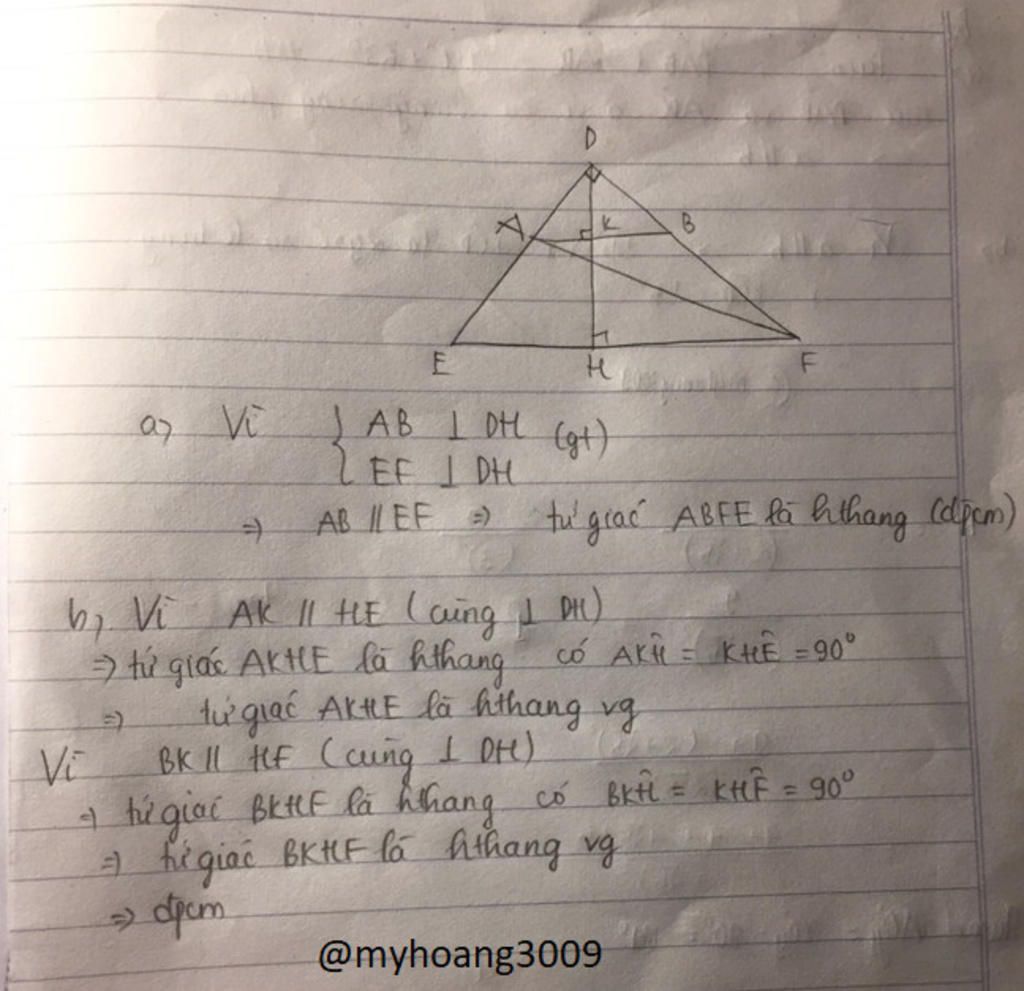 D
A K B
E H F
a) Vì { AB ⊥ DH (gt)
EF ⊥ DH
=) AB // EF =) tứ giác ABFE là hthang (đpcm)
b, Vì AK // HE (cùng ⊥ DH)
=) tứ giác AKHE là hthang có AKĤ = KHÊ = 90°
=) tứ giác AKHE là hthang vg
Vì BK // HF (cùng ⊥ DH)
=) tứ giác BKHF là hthang có BKĤ = KHF̂ = 90°
=) tứ giác BKHF là hthang vg
=) đpcm
@myhoang3009